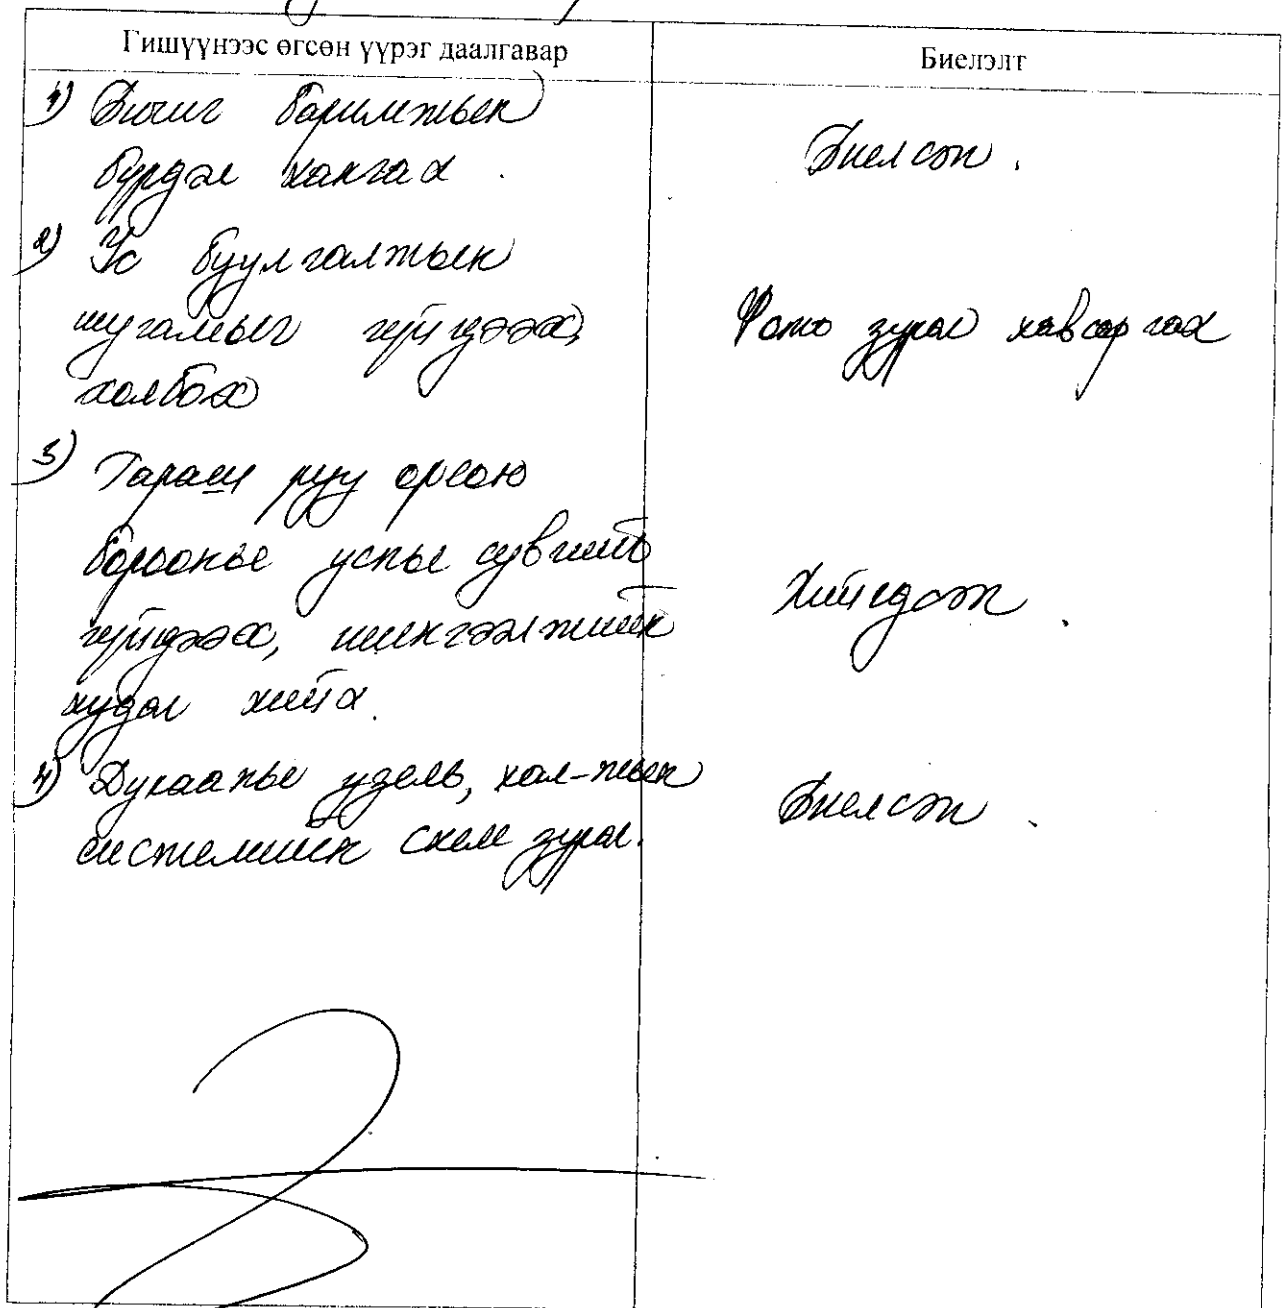 Гишүүнээс өгсөн үүрэг даалгавар
Биелэлт
1) Бичиг баримтын
бүрдэл хангах.
Биелсэн.
2) Ус буулгалтын
шугамыг гүйцээх,
холбох
Фото зураг хавсаргах
3) Гараш руу орсон
борооны усны сувгийг
гүйцээх, шингээлтийн
худаг хийх.
Хийгдсэн.
4) Дулааны узель, хал-тын
системийн схем зураг.
Биелсэн.